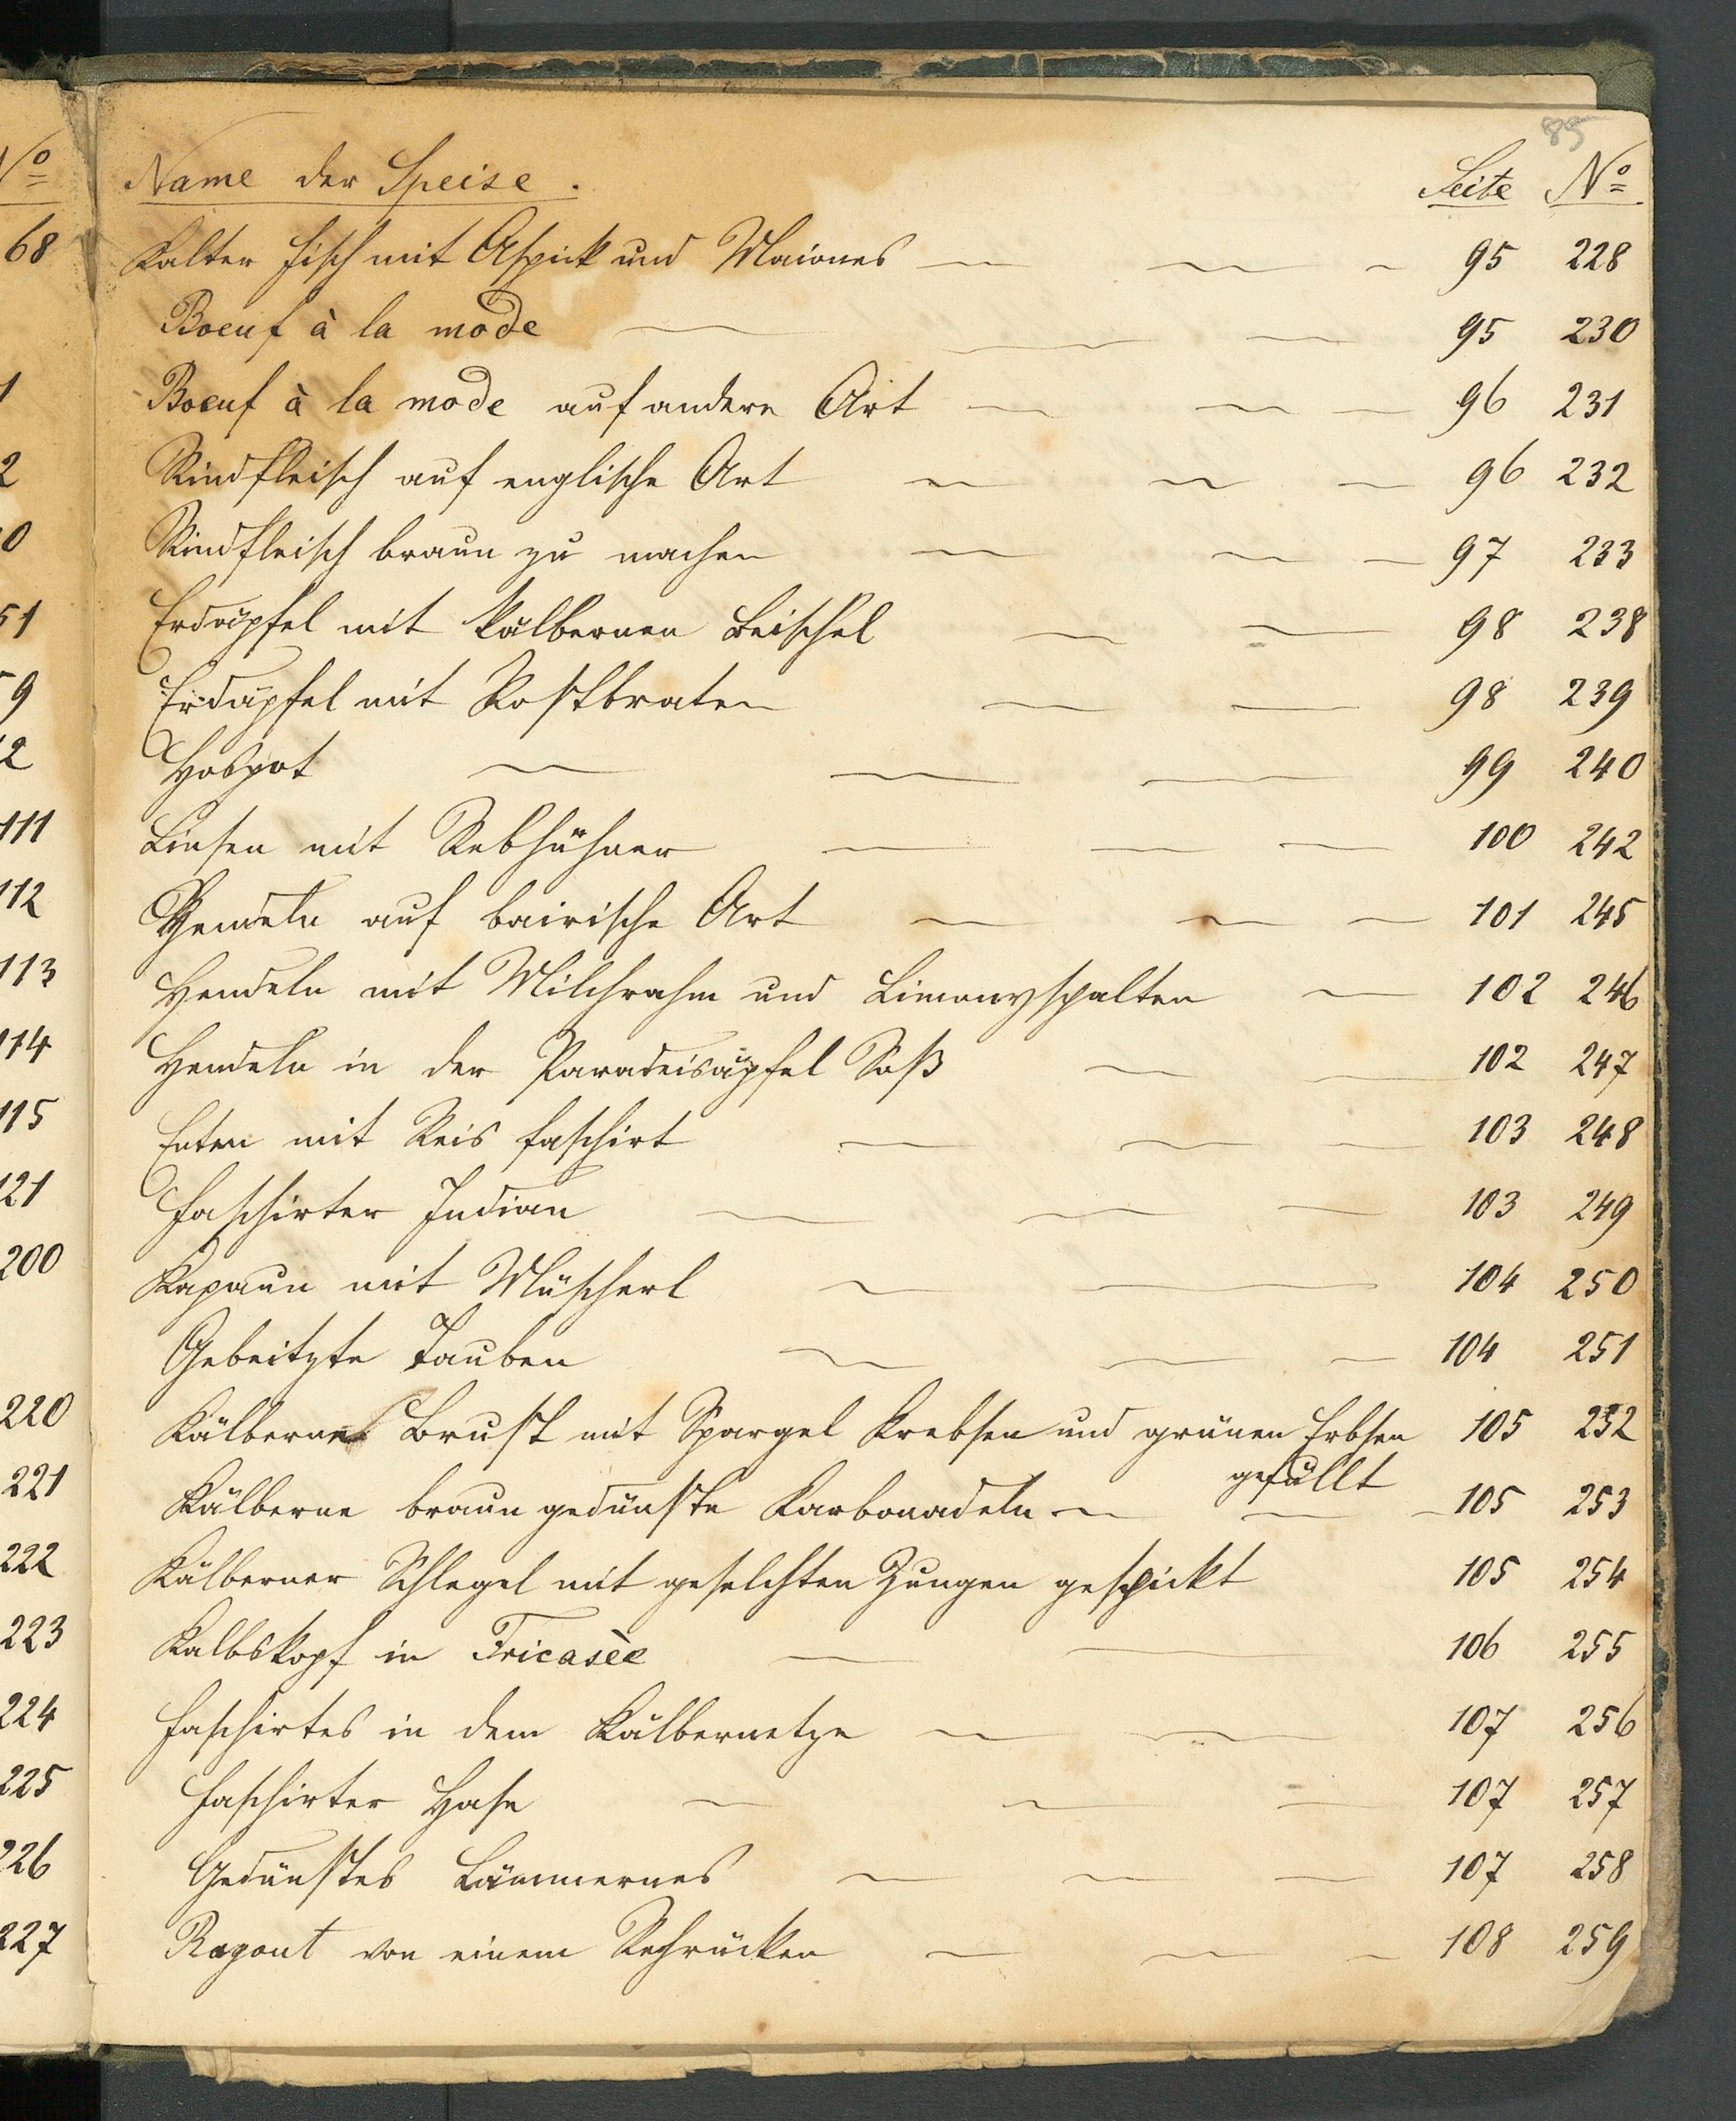 85
Name der Speise. Seite No
Kalter Fisch mit Aspick und Maiones 95 228
Boeuf à la mode 95 230
Boeuf à la mode auf andere Art 96 231
Rindfleisch auf englische Art 96 232
Rindfleisch braun zu machen 97 233
Erdäpfel mit kälbernen Beischel 98 238
Erdäpfel mit Rostbraten 98 239
Hospot 99 240
Linsen mit Rebhühner 100 242
Hendeln auf bairische Art 101 245
Hendeln mit Milchrahm und Limonyspalten 102 246
Hendeln in der Paradeisäpfel Soß 102 247
Enten mit Reis faschirt 103 248
Faschirter Indian 103 249
Kapaun mit Müscherl 104 250
Gebeitzte Tauben 104 251
Kälberne Brust mit Spargel Krebsen und grünen Erbsen 105 252
gefüllt
Kälberne braun gedünste Karbonadeln 105 253
Kälberner Schlegel mit geselchten Zungen gespickt 105 254
Kalbskopf in Fricasèe 106 255
Faschirtes in dem Kälbernetze 107 256
Faschirter Hase 107 257
Gedünstes Lämmernes 107 258
Ragout von einem Rehrücken 108 259
No
68
1
2
0
51
9
2
111
112
113
114
115
121
200
220
221
222
223
224
225
226
227